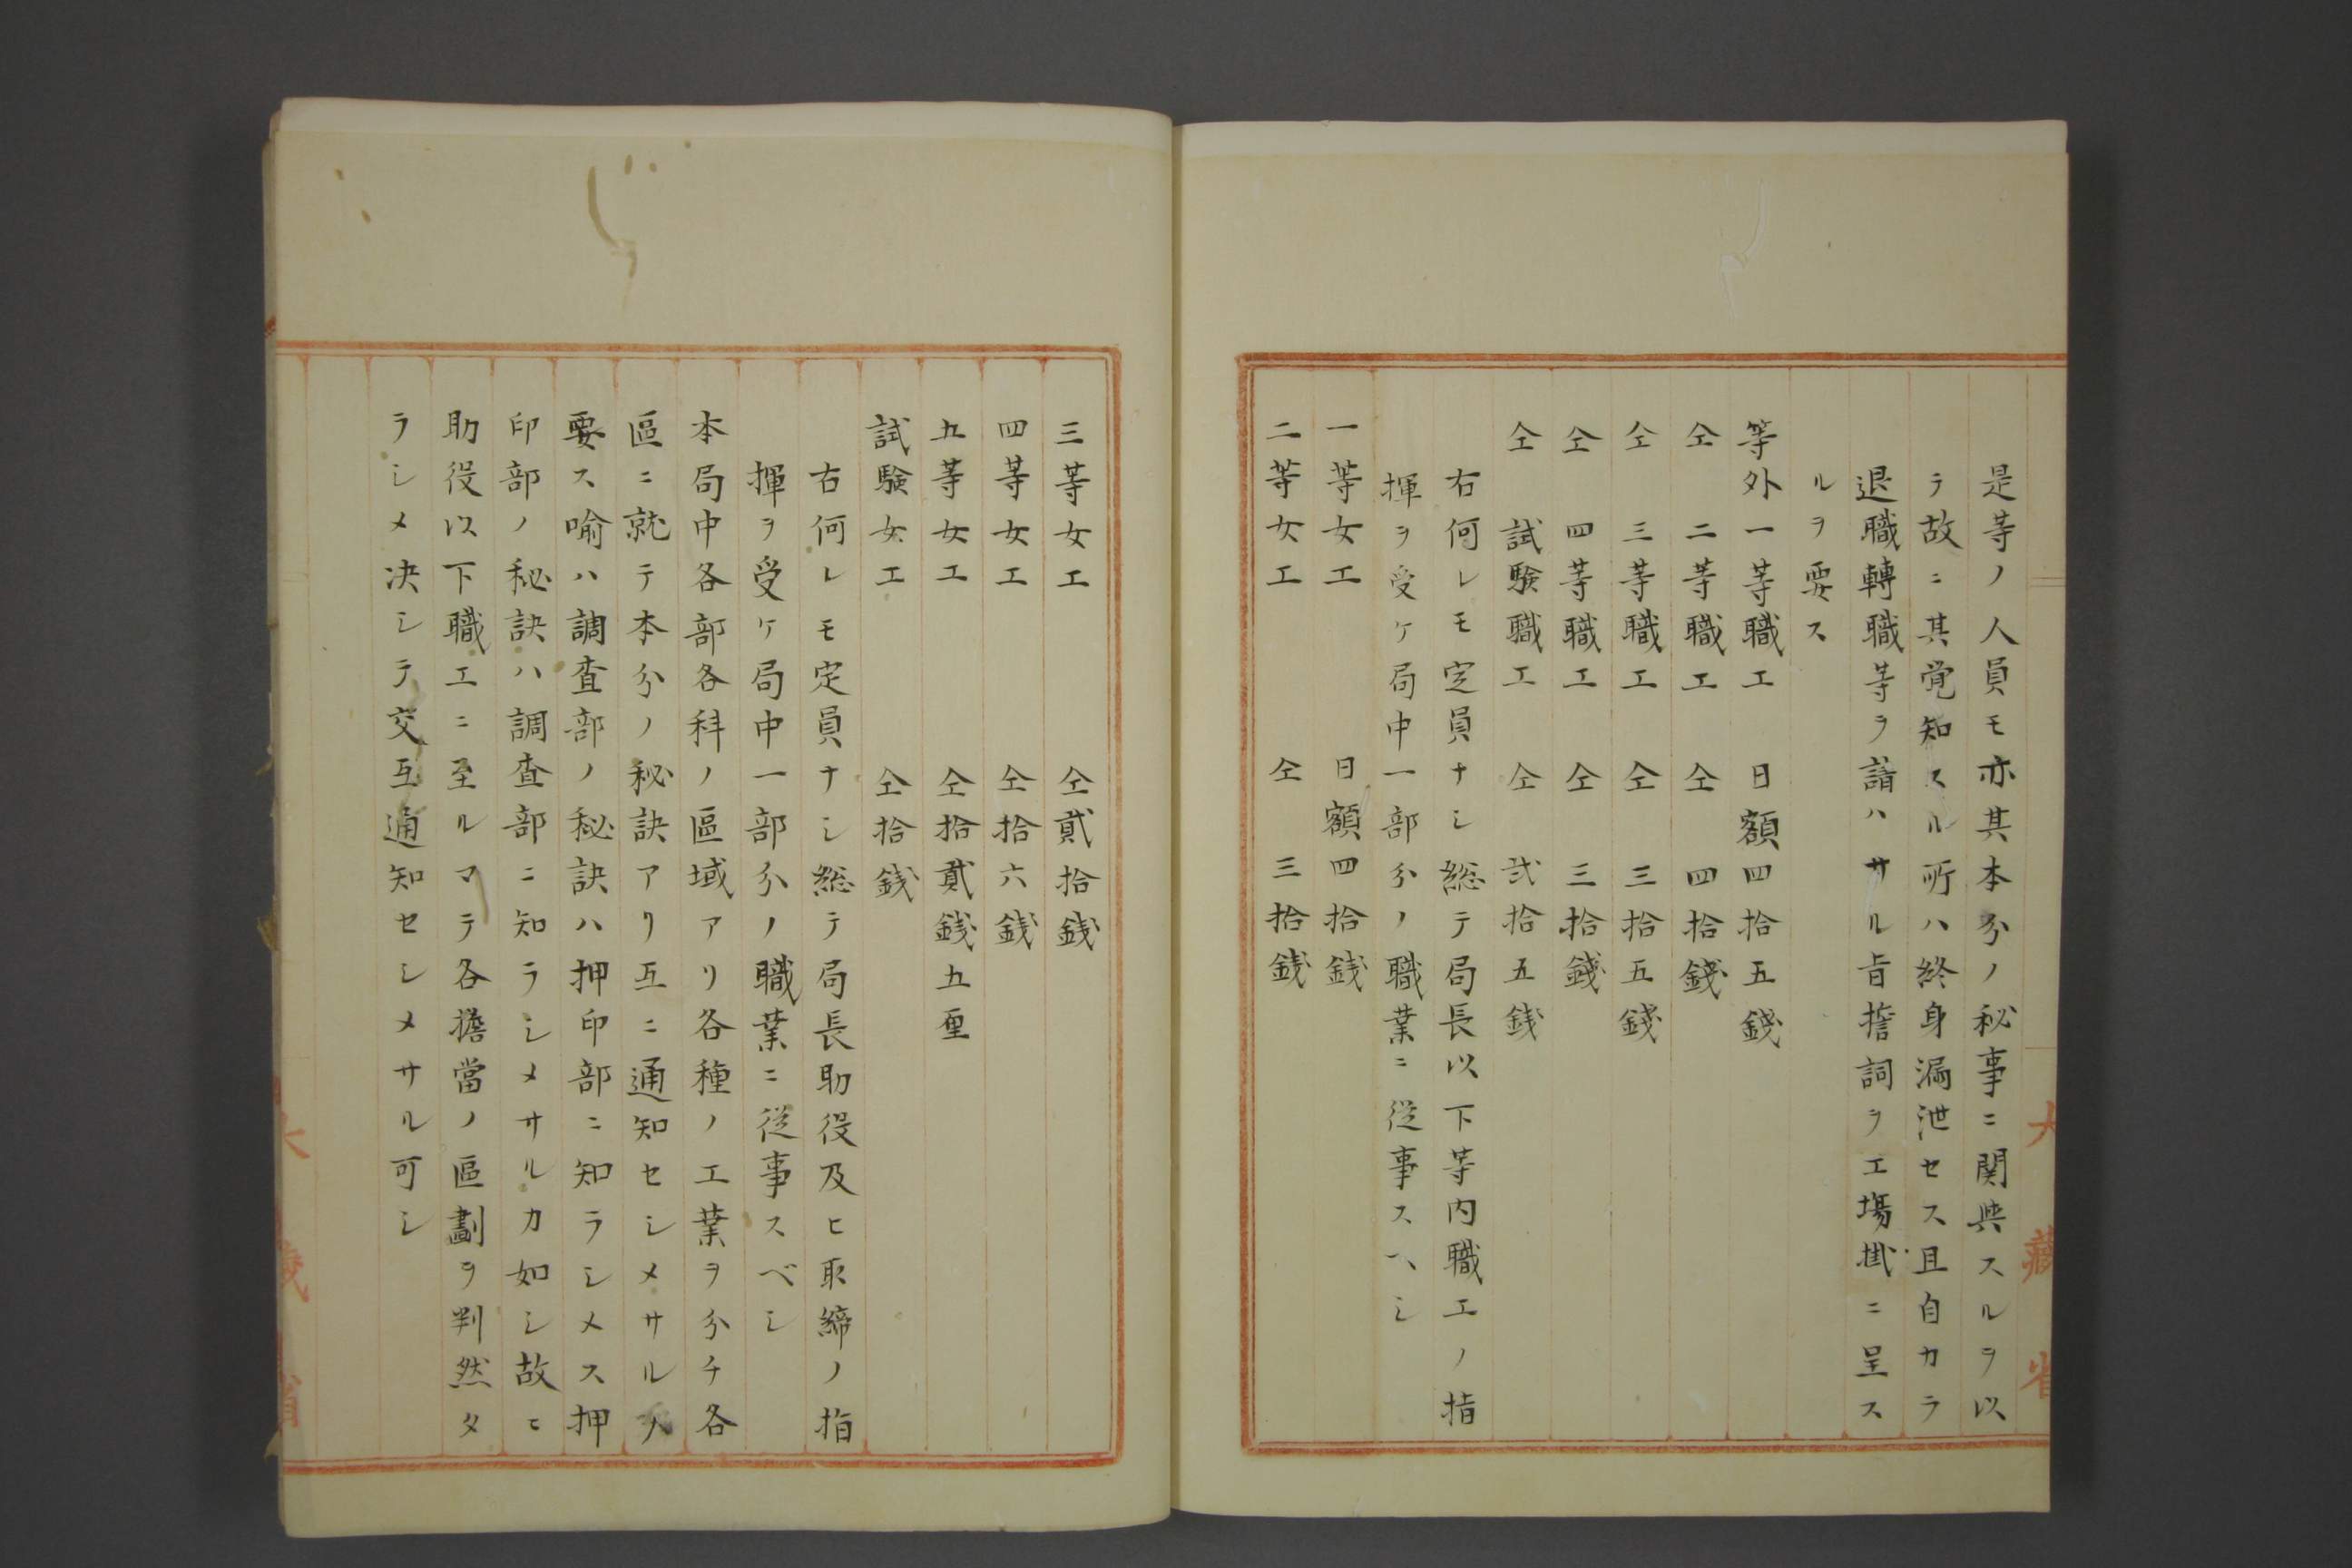 是等ノ人員モ亦其本分ノ秘事ニ関與スルヲ以
テ故ニ其覚知スル所ハ終身漏泄セス且自カラ
退職轉職等ヲ請ハサル旨誓詞ヲ工場掛ニ呈ス
ルヲ要ス
等外一等職工 日額四拾五錢
仝 二等職工 仝 四拾錢
仝 三等職工 仝 三拾五錢
仝 四等職工 仝 三拾錢
仝 試験職工 仝 弐拾五錢
右何レモ定員ナシ総テ局長以下等内職工ノ指
揮ヲ受ケ局中一部分ノ職業ニ從事スヘシ
一等女工 日額四拾錢
二等女工 仝 三拾錢
大藏省
三等女工 仝貳拾錢
四等女工 仝拾六錢
五等女工 仝拾貳錢五厘
試験女工 仝拾錢
右何レモ定員ナシ総テ局長助役及ヒ取締ノ指
揮ヲ受ケ局中一部分ノ職業ニ從事スベシ
本局中各部各科ノ區域アリ各種ノ工業ヲ分チ各
區ニ就テ本分ノ秘訣アリ互ニ通知セシメサルヲ
要ス喻ハ調査部ノ秘訣ハ押印部ニ知ラシメス押
印部ノ秘訣ハ調査部ニ知ラシメサルカ如シ故ニ
助役以下職工ニ至ルマテ各擔當ノ區劃ヲ判然タ
ラシメ决シテ交互通知セシメサル可シ
大藏省